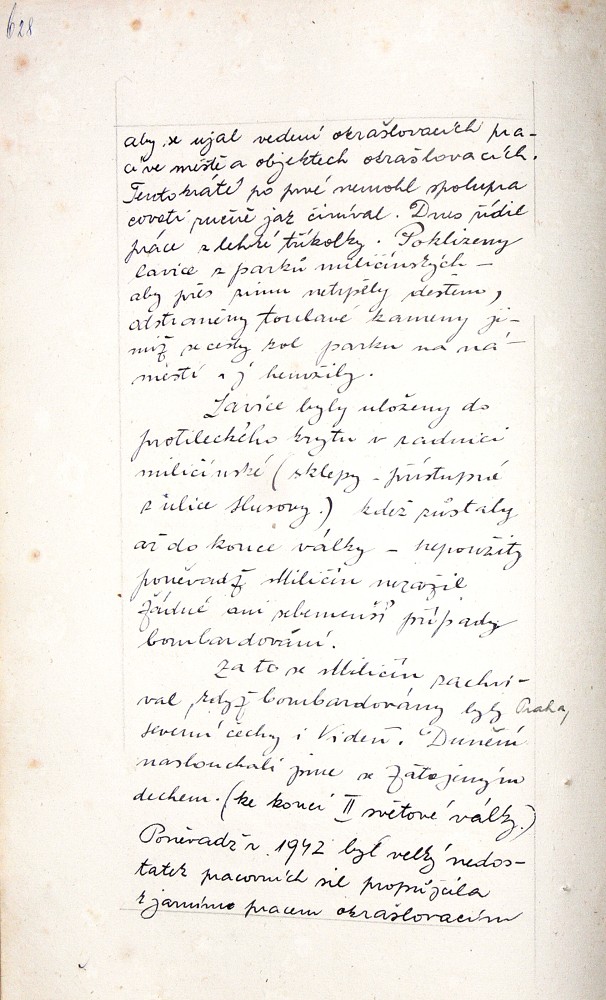 628
aby se ujal vedení okrašlovacích pra-
cí ve městě a objektech okrašlovacích.
Tentokráte po prvé nemohl spolupra
covati ručně jak činíval. Dnes řídil
práce z lehké tříkolky. Poklizeny
lavice z parků miličínských -
aby přes zimu netrpěly deštěm,
odstraněny toulavé kameny ji-
miž se cesty kol parku na ná-
městí hemžily.
Lavice byly uloženy do
protileckého krytu v radnici
miličínské (sklepy - přístupné
z ulice Husovy.) kdež zůstaly
až do konce války - nepoužity
poněvadž Miličín nezažil
žádné ani sebemenší případy
bombardování.
Za to se Miličín zachví-
val, když bombardovány byly Praha,
severní čechy i Vídeň. Dunění
naslouchali jsme se zatajeným
dechem. (ke konci II světové války.)
Poněvadž r. 1942 byl velký nedos-
tatek pracovních sil propůjčila
k jarnímu pracem okrašlovacím